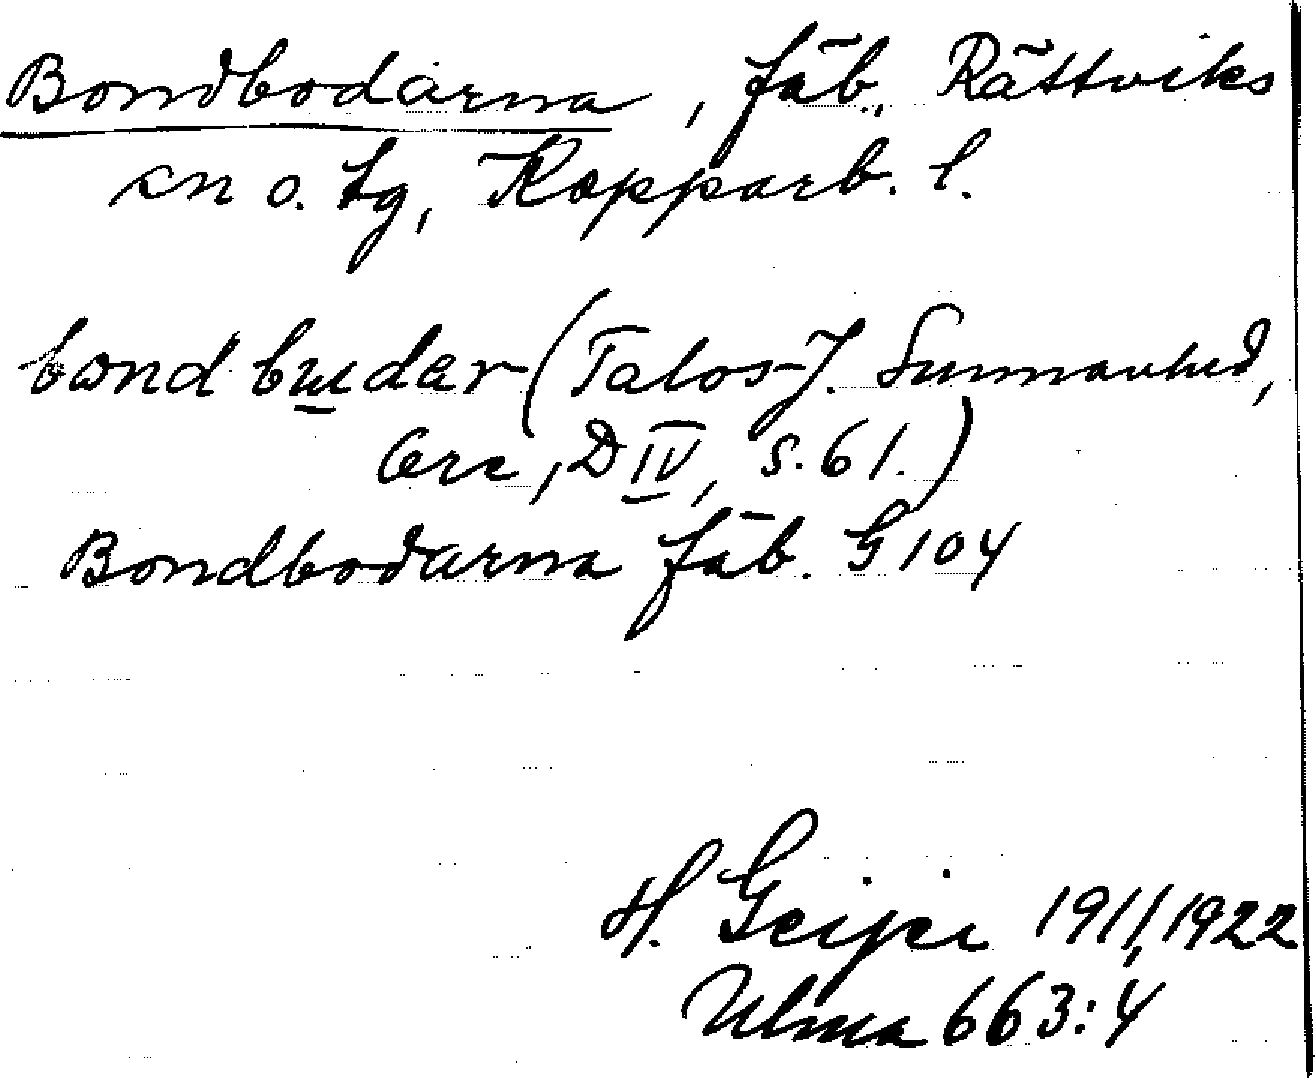 Bondbodarna, fäb., Rättviks
sn o. tg, Kopparb. l.
bond bɯdar (Talos J. Sunnanhed,
Ore, D IV, s. 61.)
Bondbodarna fäb. G 104
H. Geijer 1911, 1922
Ulma 663:4